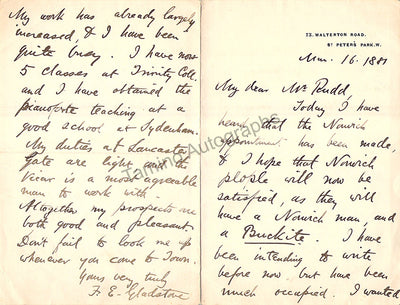 73. WALTERTON ROAD,
ST PETERS PARK. W.
16. 1881
My dear Mr Rudd,
Today I have
heard that the Norwich
appointment has been made,
& I hope that Norwich
people will now be
satisfied, as they will
have a Norwich man, and
a Buckite. I have
been intending to write
before now but have been
much occupied. I wanted
My work has already largely
increased, & I have been
quite busy. I have now
5 classes at Trinity Coll.
and I have obtained the
pianoforte teaching at a
good school at Sydenham.
My duties at Lancaster
Gate are light and the
Vicar is a most agreeable
man to work with.
Altogether my prospects are
both good and pleasant.
Don't fail to look me up
whenever you come to Town.
Yours very truly
F. E. Gladstone
Taming Autographs